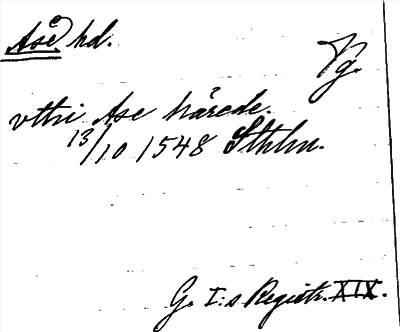 Åse hd.
Vg.
vthi Ase härede.
13/10 1548 Sthlm.
G. I:s Registr. XIX.